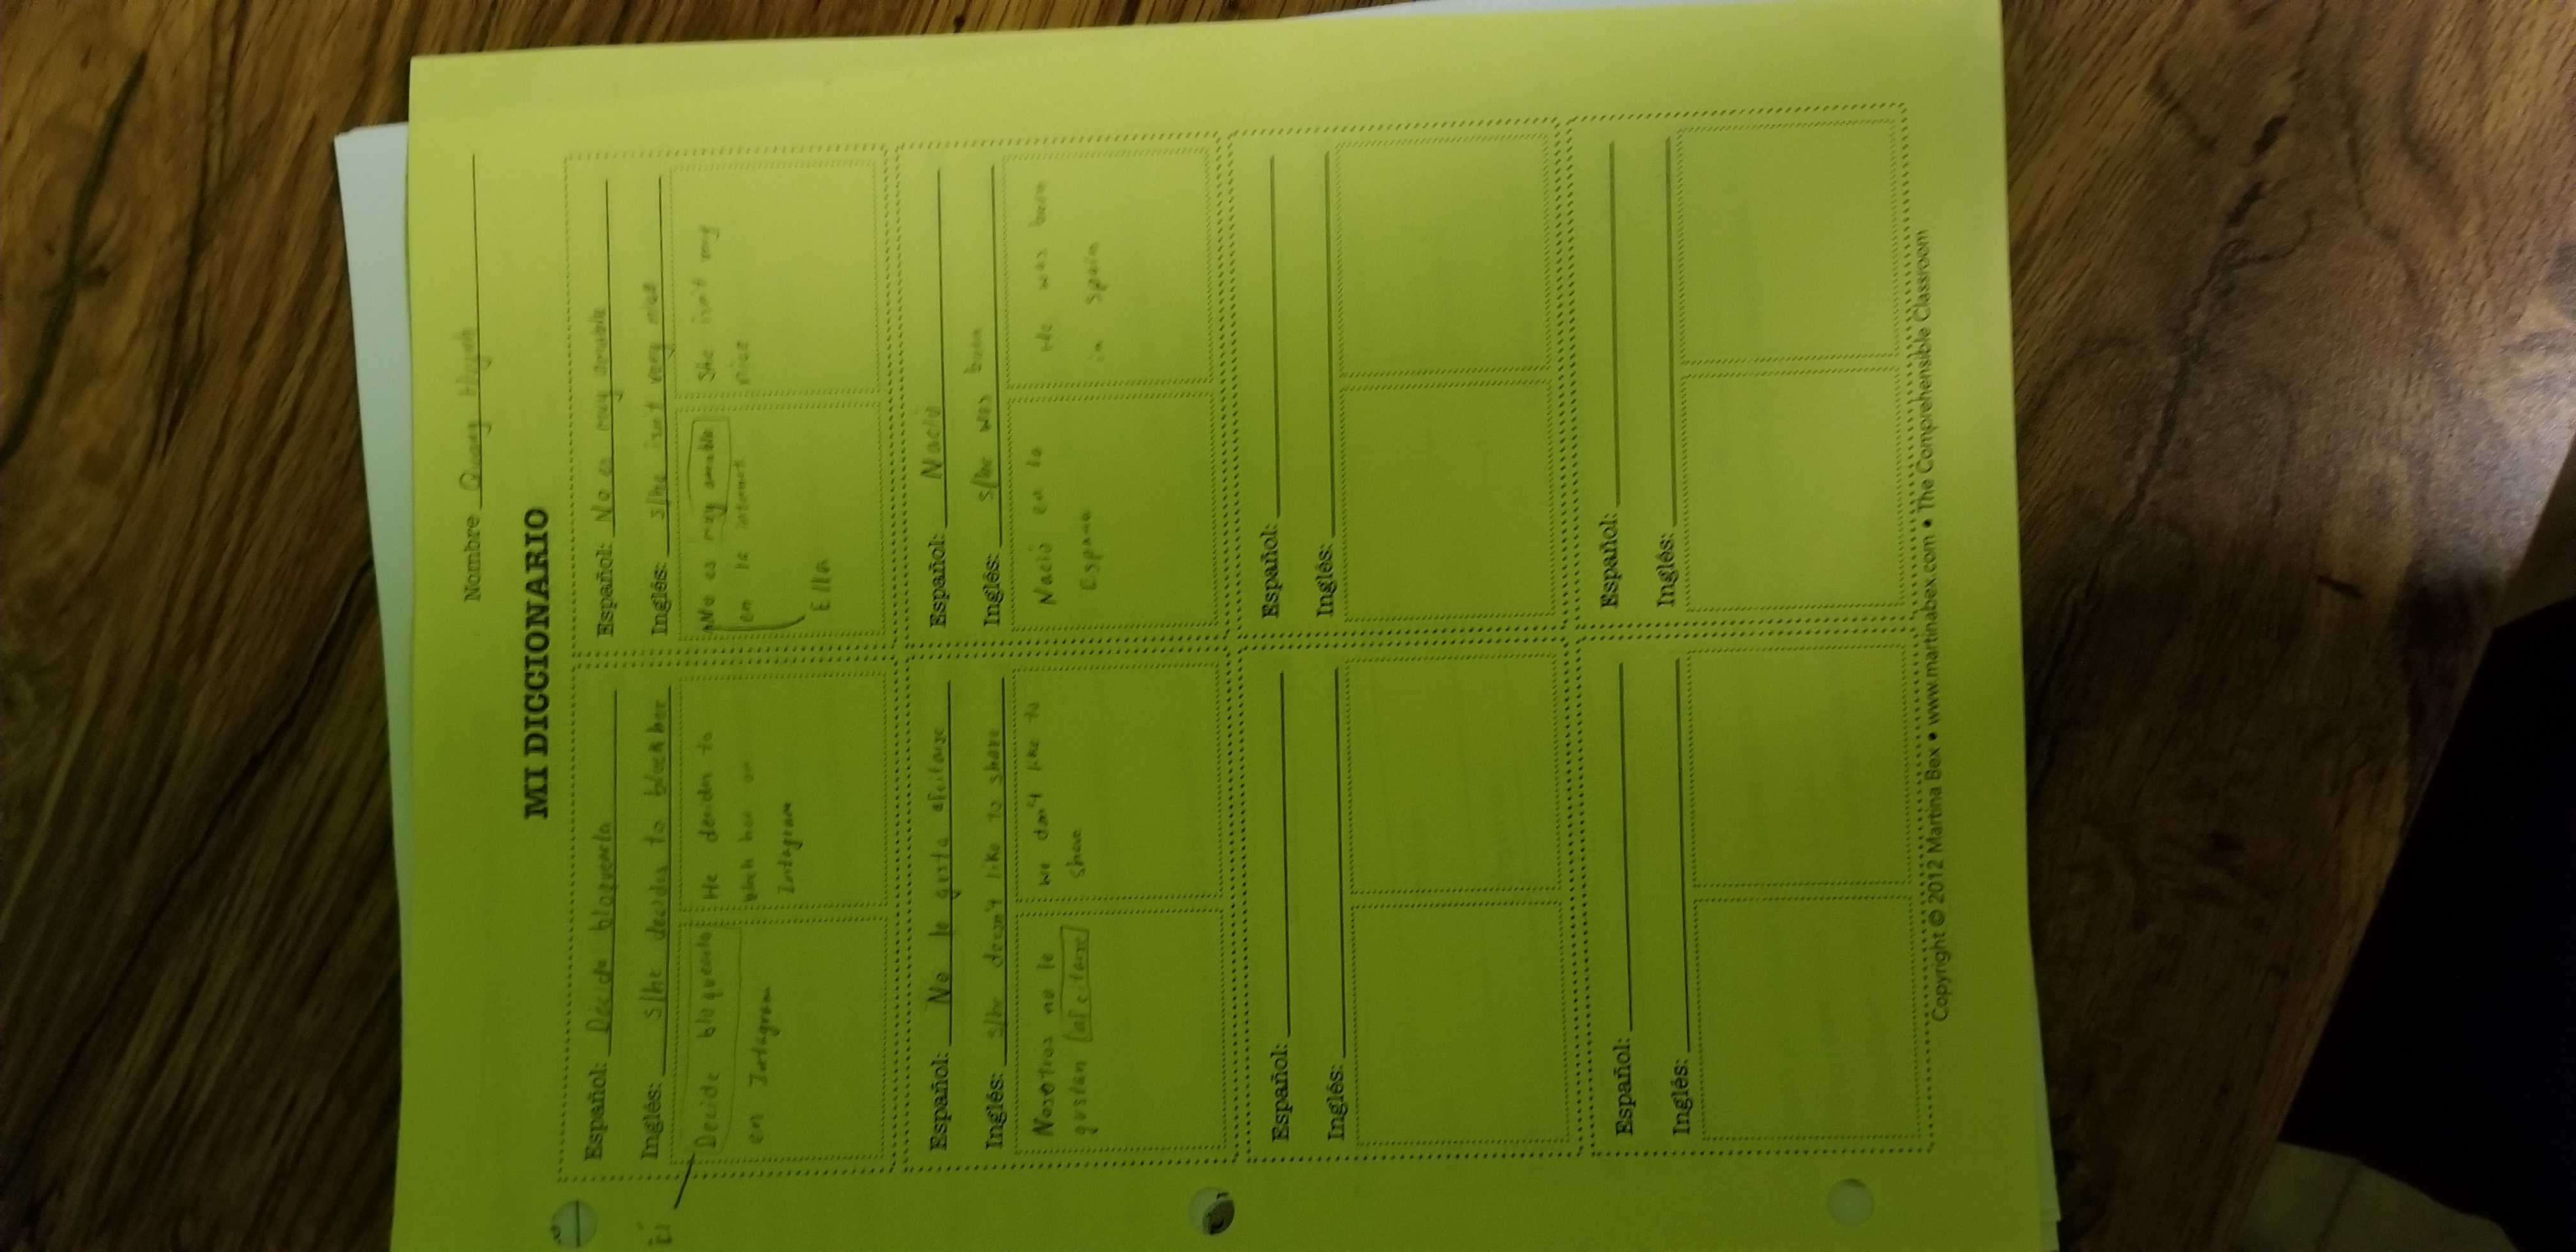 Nombre Quang Huynh
MI DICCIONARIO
Español: Decide bloquearla
Inglés: s/he decides to block her
El
Decide bloquearla
en Intagram
He decides to
block her on
Intagram
Español: No es muy amable
Inglés: s/he isn't very nice
No es muy amable
en la internet
Ella
She isn't very
nice
Español: No le gusta afeitarse
Inglés: s/he doesn't like to shave
Nosotros no le
gustan afeitarse
We don't like to
shave
Español: Nació
Inglés: s/he was born
Nació en la
España
He was born
in Spain
Español:
Inglés:
Español:
Inglés:
Español:
Inglés:
Español:
Inglés:
Copyright © 2012 Martina Bex • www.martinabex.com • The Comprehensible Classroom